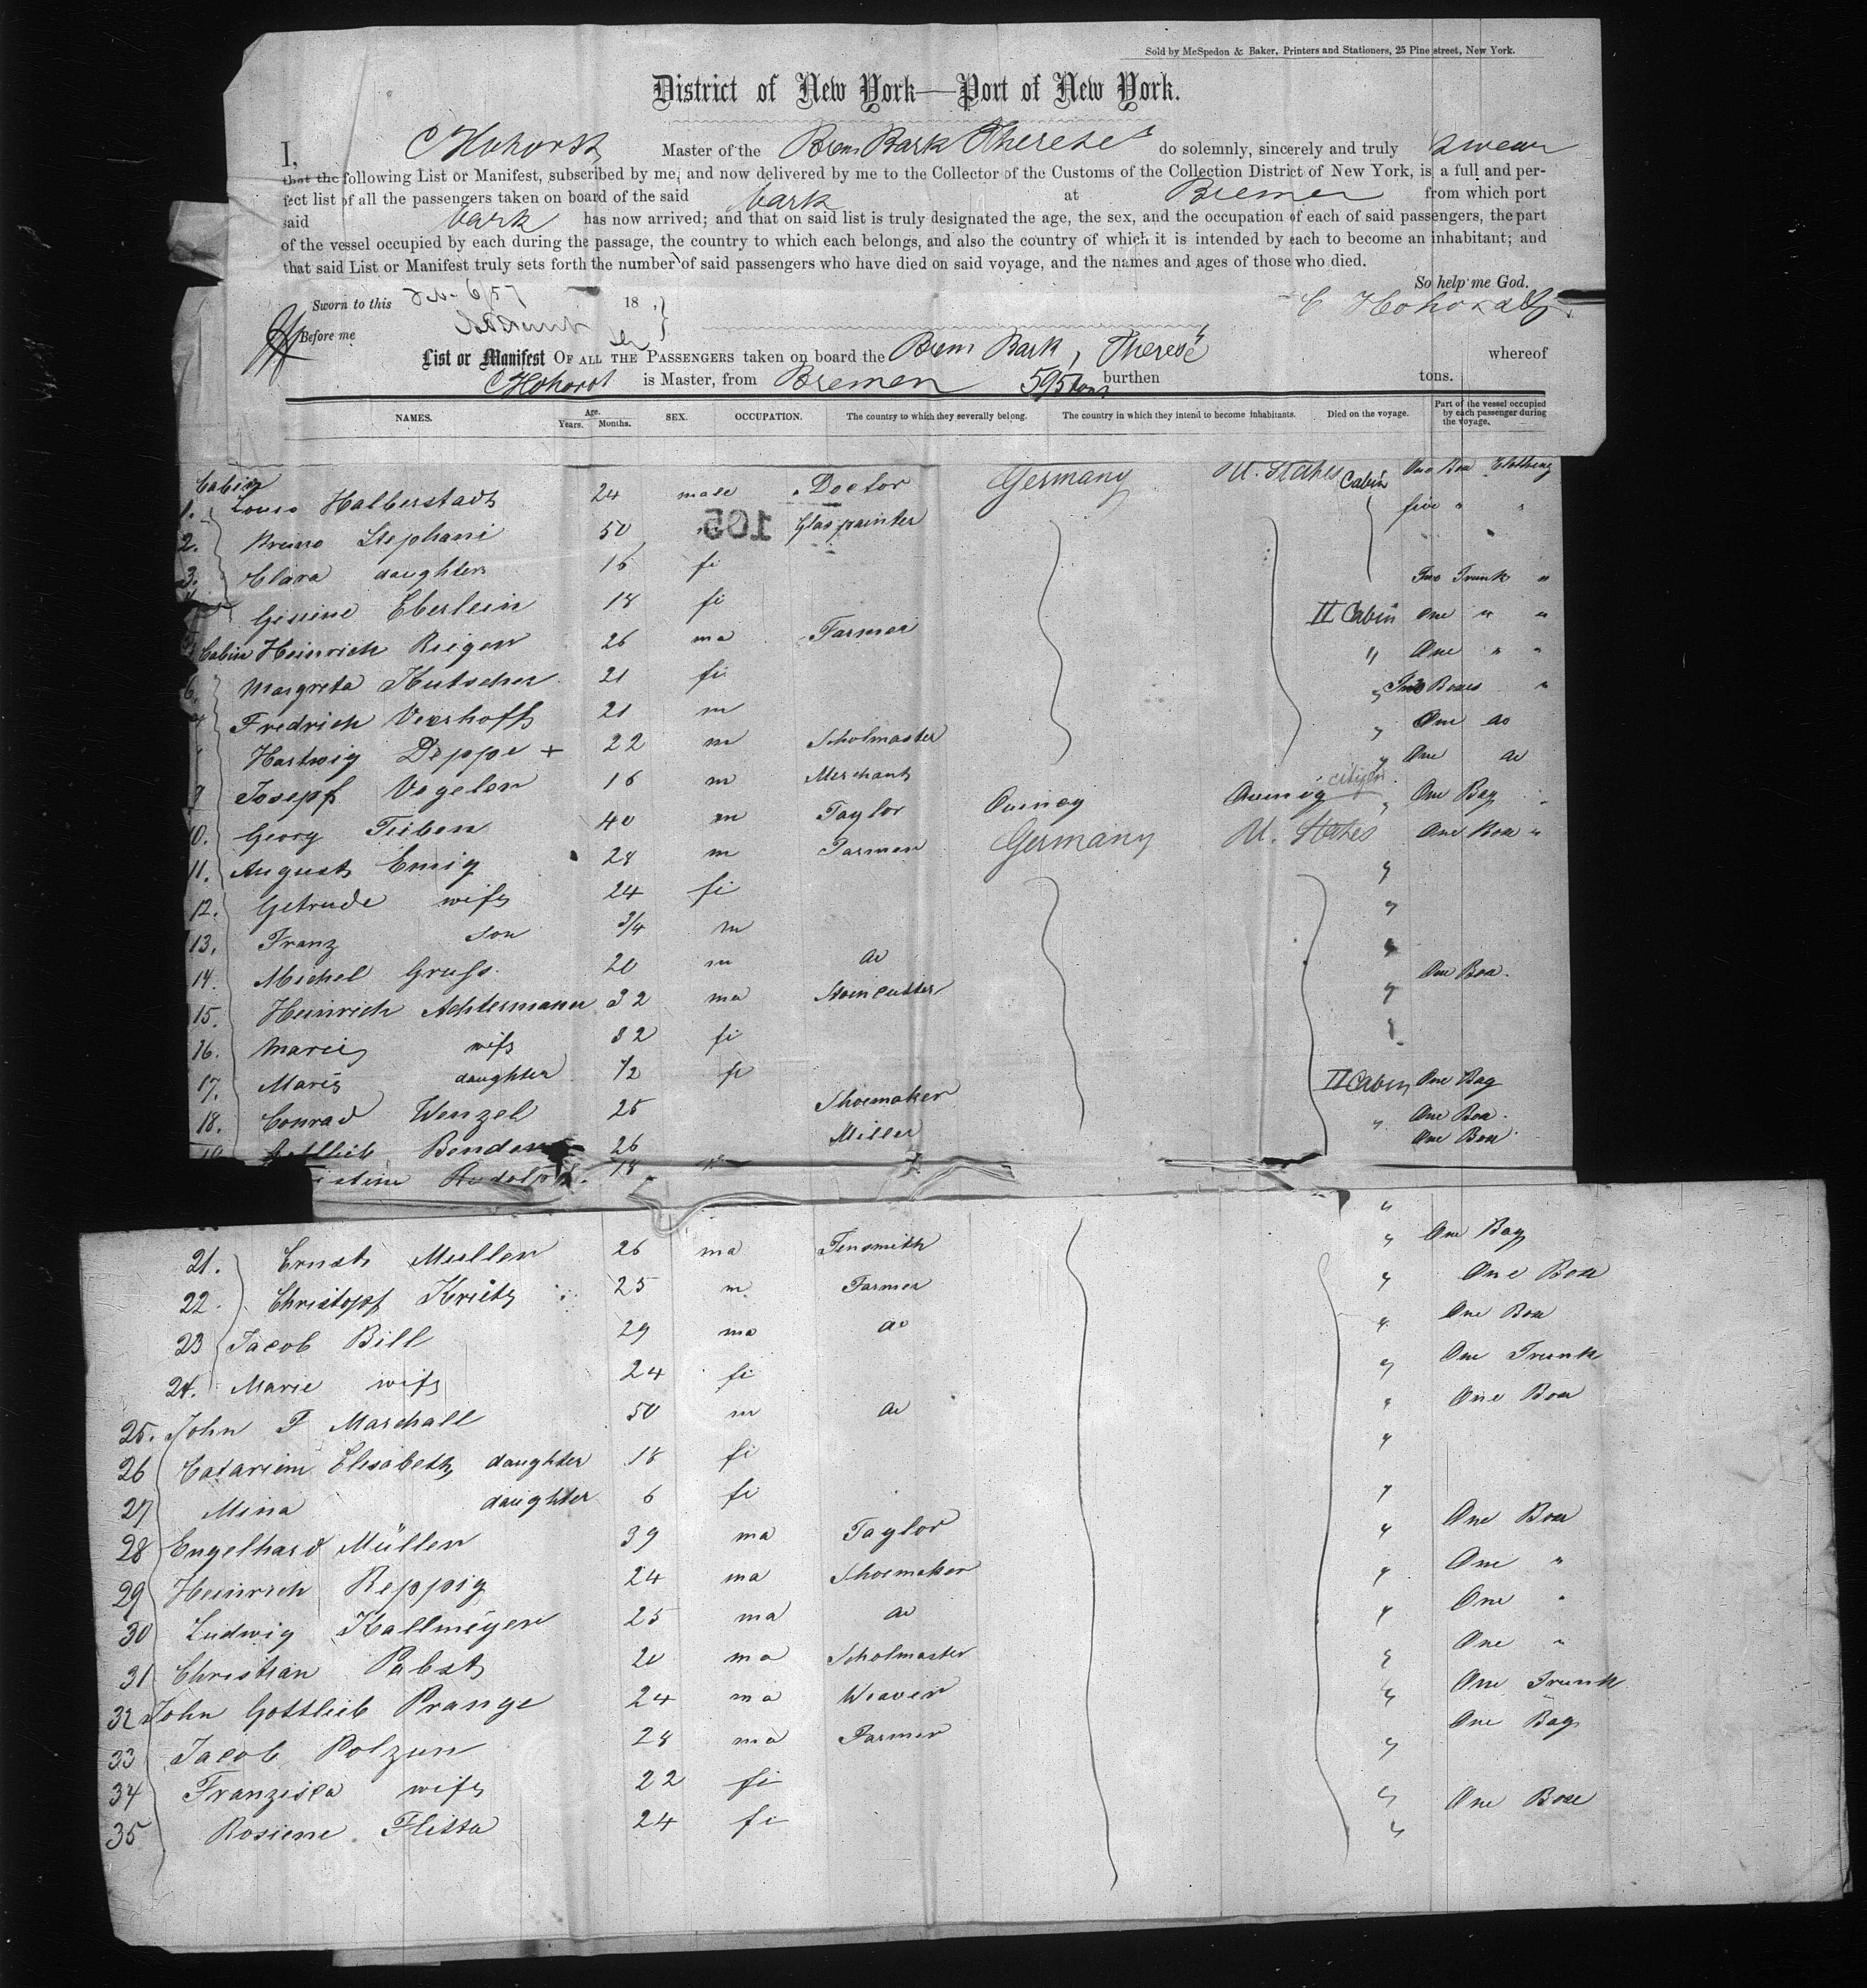 Sold by McSpedon & Baker, Printers and Stationers, 25 Pine street, New York.
District of New York—Port of New York.
I, C Hohorst Master of the Brem Bark Therese do solemnly, sincerely and truly swear
that the following List or Manifest, subscribed by me, and now delivered by me to the Collector of the Customs of the Collection District of New York, is a full and per-
fect list of all the passengers taken on board of the said bark at Bremen from which port
said bark has now arrived; and that on said list is truly designated the age, the sex, and the occupation of each of said passengers, the part
of the vessel occupied by each during the passage, the country to which each belongs, and also the country of which it is intended by each to become an inhabitant; and
that said List or Manifest truly sets forth the number of said passengers who have died on said voyage, and the names and ages of those who died.
So help me God.
Sworn to this 6/57 18
C Hohorst
Before me
List or Manifest OF ALL THE PASSENGERS taken on board the Brem Bark, Therese whereof
C Hohorst is Master, from Bremen 595 tons burthen tons.
NAMES. Age. Years. Months. SEX. OCCUPATION. The country to which they severally belong. The country in which they intend to become inhabitants. Died on the voyage. Part of the vessel occupied by each passenger during the voyage.
Cabin
1. Louis Halberstadt 24 male Doctor Germany U. States Cabin One Box Clothing
2. Bruno Stephani 50 Glaspainter five " "
105
3. Clara daughter 16 fe "
Gesiene Eberlein 18 fe Two Trunk "
Cabin Heinrich Reigen 26 ma Farmer II Cabin One " "
6. Margreta Kutscher 21 fe " One " "
Fredrich Vershoff 21 m " Two Boxes "
Hartwig Deppe + 22 m Scholmaster " One do
9 Josepf Vogelen 16 m Merchant " One do
10. Georg Tieben 40 m Taylor Quincy Quincy citizen " One Bag "
11. August Emig 28 m Farmer Germany U. States One Box "
12. Getrude wife 24 fe "
13. Franz son 3/4 m "
14. Michel Gruss 20 m do "
15. Heinrich Achtermann 32 ma Steincutter " One Box.
16. Marie wife 32 fe "
17. Marie daughter 1/2 fe
18. Conrad Wenzel 25 Shoemaker II Cabin One Bag
19 Gottlieb Bender 26 Miller " One Box.
istine Rudolph. 18 One Box.
21. Ernst Muller 26 ma Tensmith " One Bag
22. Christopf Kreitz 25 m Farmer " One Box
23 Jacob Bill 29 ma do " One Box
24. Marie wife 24 fe " One Trunk
25. John F Marschall 50 m do " One Box
26 Catariene Elisabeth daughter 18 fe "
27 Mina daughter 6 fe "
28 Engelhard Müller 39 ma Taylor " One Box
29 Heinrich Reppig 24 ma Shoemaker " One "
30 Ludwig Kallmeyer 25 ma do " One "
31 Christian Pabst 20 ma Scholmaster " One "
32 John Gottlieb Prange 24 ma Weaver " One Trunk
33 Jacob Polzun 28 ma Farmer " One Bag
34 Franzisca wife 22 fe "
35 Rosiene Flitta 24 fe " One Box